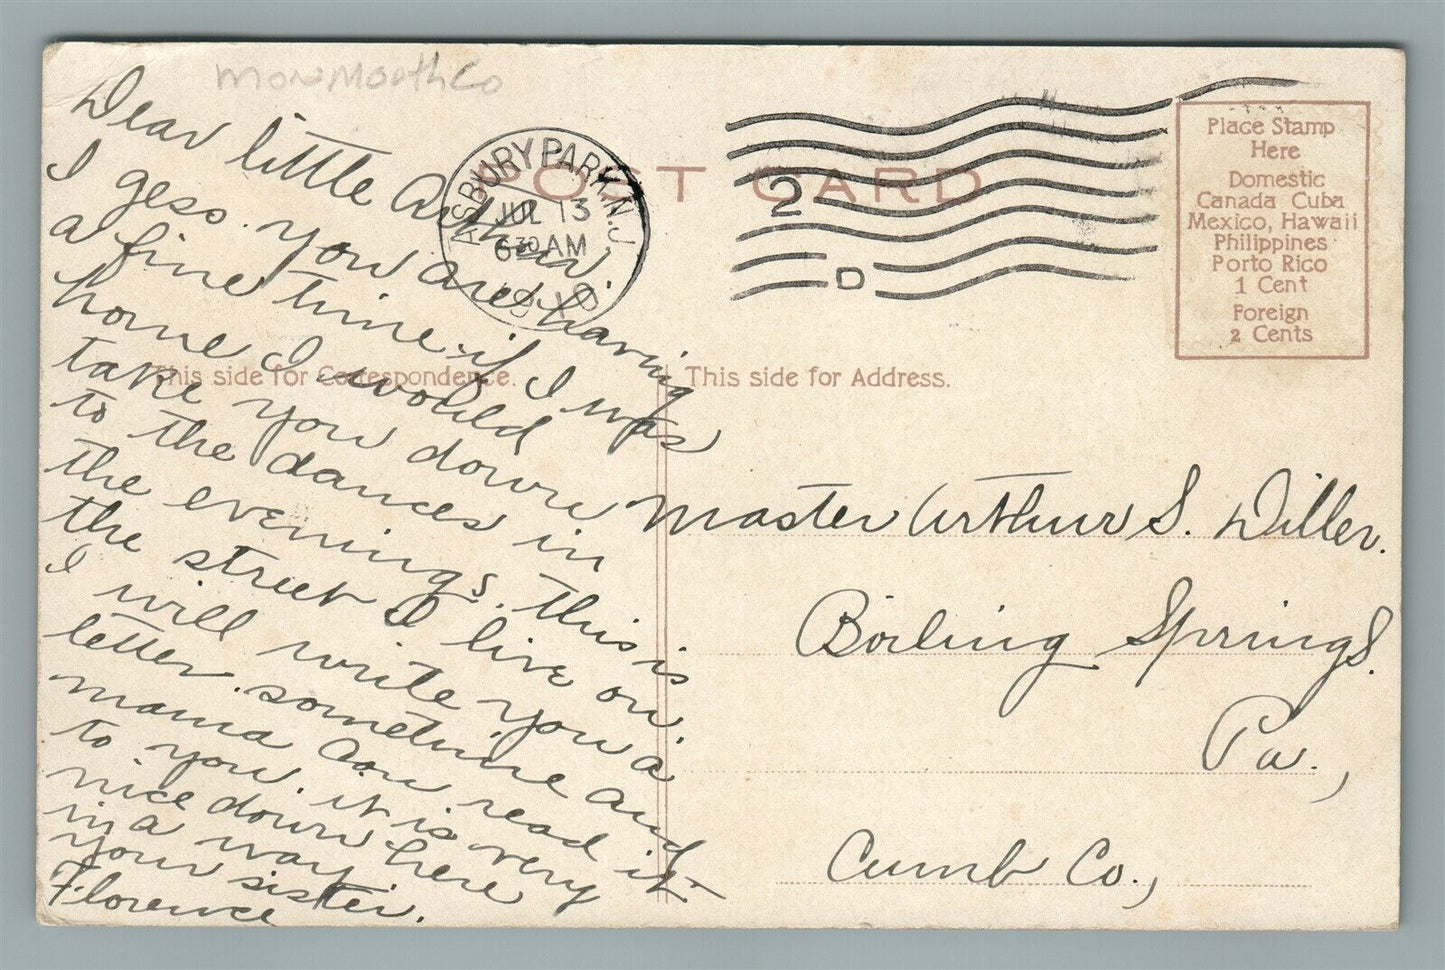 Monmouth Co
POST CARD
ASBURY PARK, N.J.
JUL 13
6 30 AM
2
D
Place Stamp
Here
Domestic
Canada Cuba
Mexico, Hawaii
Philippines
Porto Rico
1 Cent
Foreign
2 Cents
This side for Correspondence.
This side for Address.
Dear little Arthur,
I gess you are having
a fine time if I was
home I would
take you down
to the dances in
the evenings. this is
the street I live on
I will write you a
letter sometime and
mama can read it
to you it is very
nice down here
in a way
your sister.
Florence
Master Arthur S. Diller.
Boiling Springs.
Pa.,
Cumb Co.,